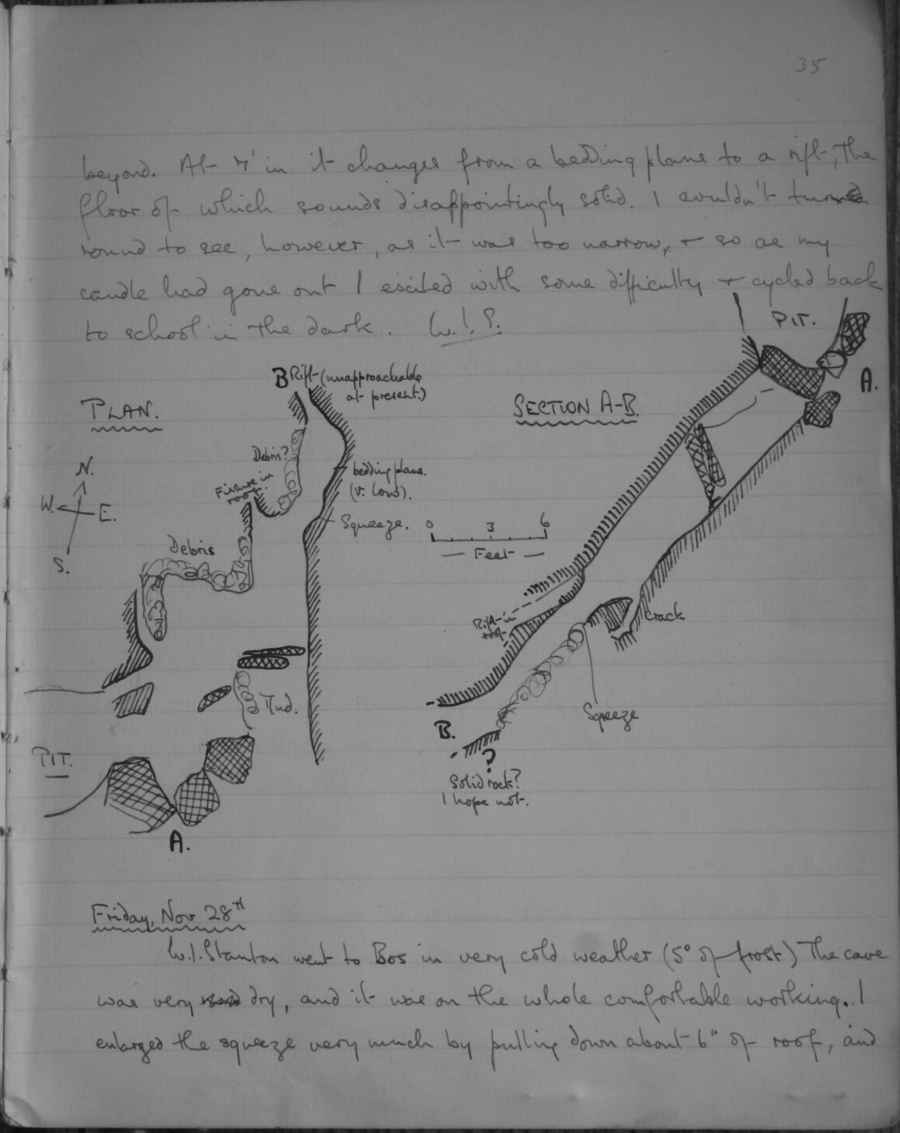 35
beyond. At 4' in it changes from a bedding plane to a rift, the
floor of which sounds disappointingly solid. I couldn't turn
round to see, however, as it was too narrow, + so as my
candle had gone out I exited with some difficulty + cycled back
to school in the dark. W.I.S.
PIT.
A.
B Rift (unapproachable
at present.)
PLAN.
SECTION A-B.
Debris?
Fissure in
roof.
bedding plane.
(v. low).
Squeeze.
N.
W. E.
S.
0 3 6
Feet
Debris
Rift in
roof
Crack
Squeeze
Mud.
B.
PIT.
?
Solid rock?
I hope not.
A.
Friday, Nov 28th
W.I. Stanton went to Bos in very cold weather (5° of frost) The cave
was very dry, and it was on the whole comfortable working. I
enlarged the squeeze very much by pulling down about 6" of roof, and